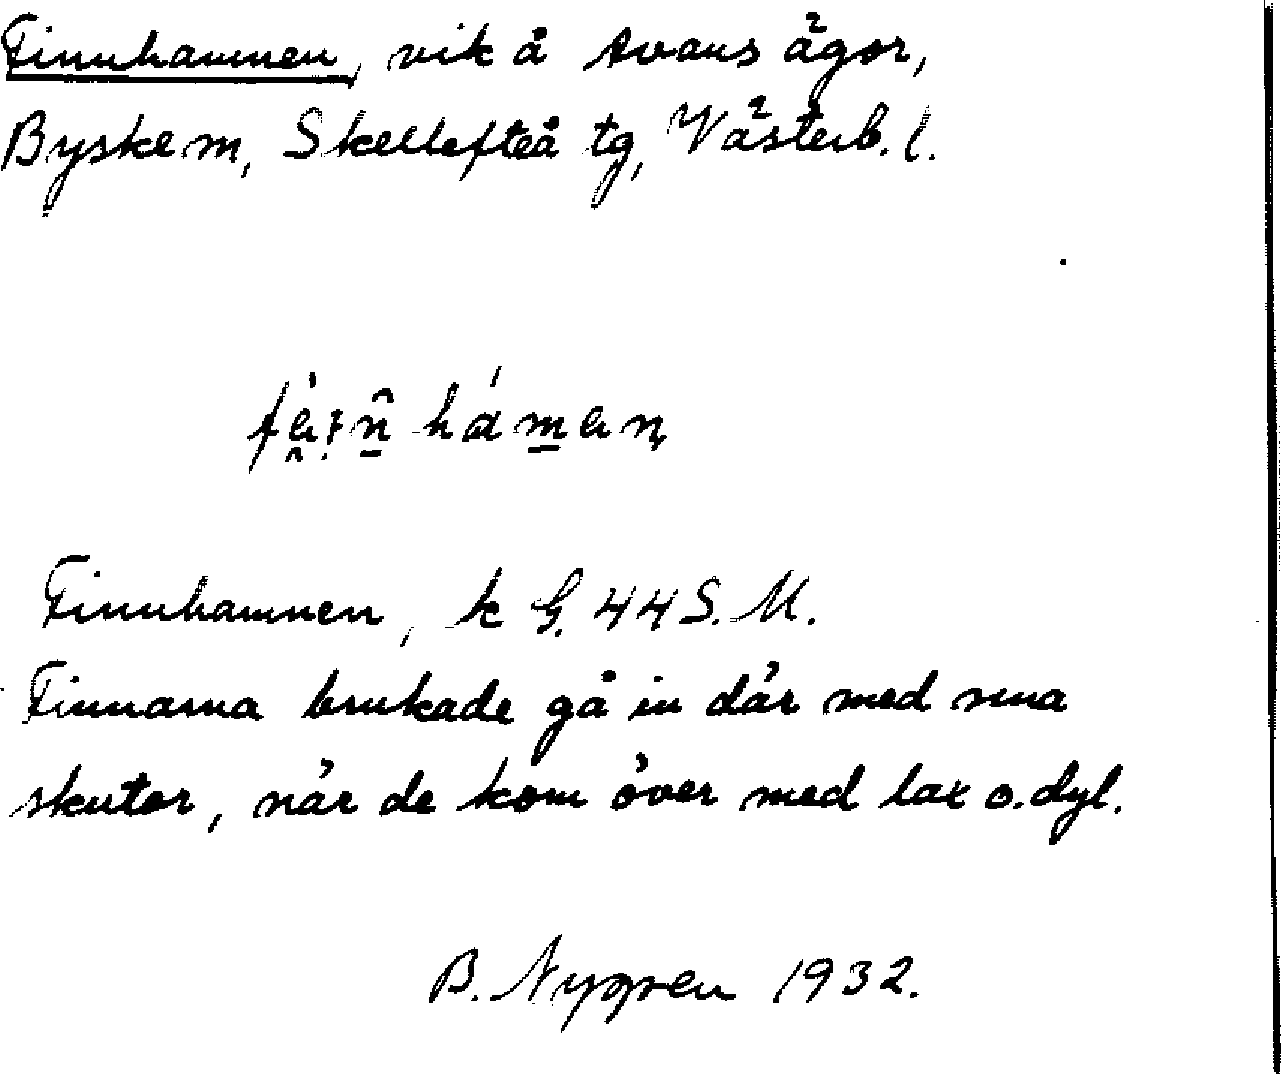 Finnhamnen, vik å Avans ägor,
Byske sn, Skellefteå tg, Västerb. l.
Finnhamnen, k G. 44 S. M.
Finnarna brukade gå in där med sina
skutor, när de kom över med lax o. dyl.
B. Nygren 1932.